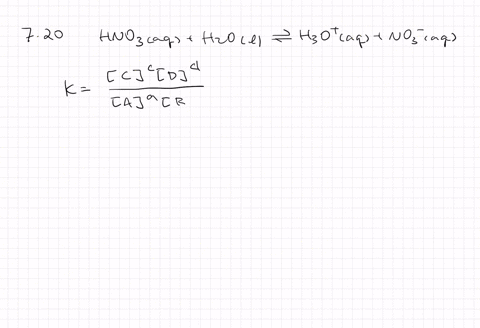 7.20 HNO₃(aq) + H₂O(l) ⇌ H₃O⁺(aq) + NO₃⁻(aq)
K = [C]ᶜ[D]ᵈ / [A]ᵃ[B